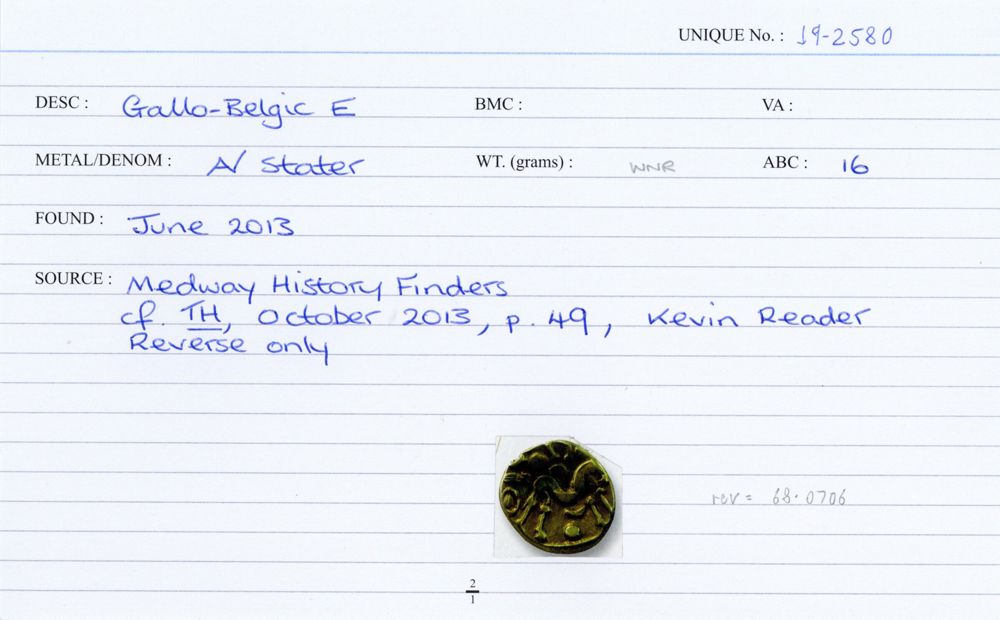 UNIQUE No. : 19-2580
DESC : Gallo-Belgic E BMC : VA :
METAL/DENOM : A/ Stater WT. (grams) : WNR ABC : 16
FOUND : June 2013
SOURCE : Medway History Finders
cf. TH, October 2013, p. 49, Kevin Reader
Reverse only
rev = 68.0706
2
1